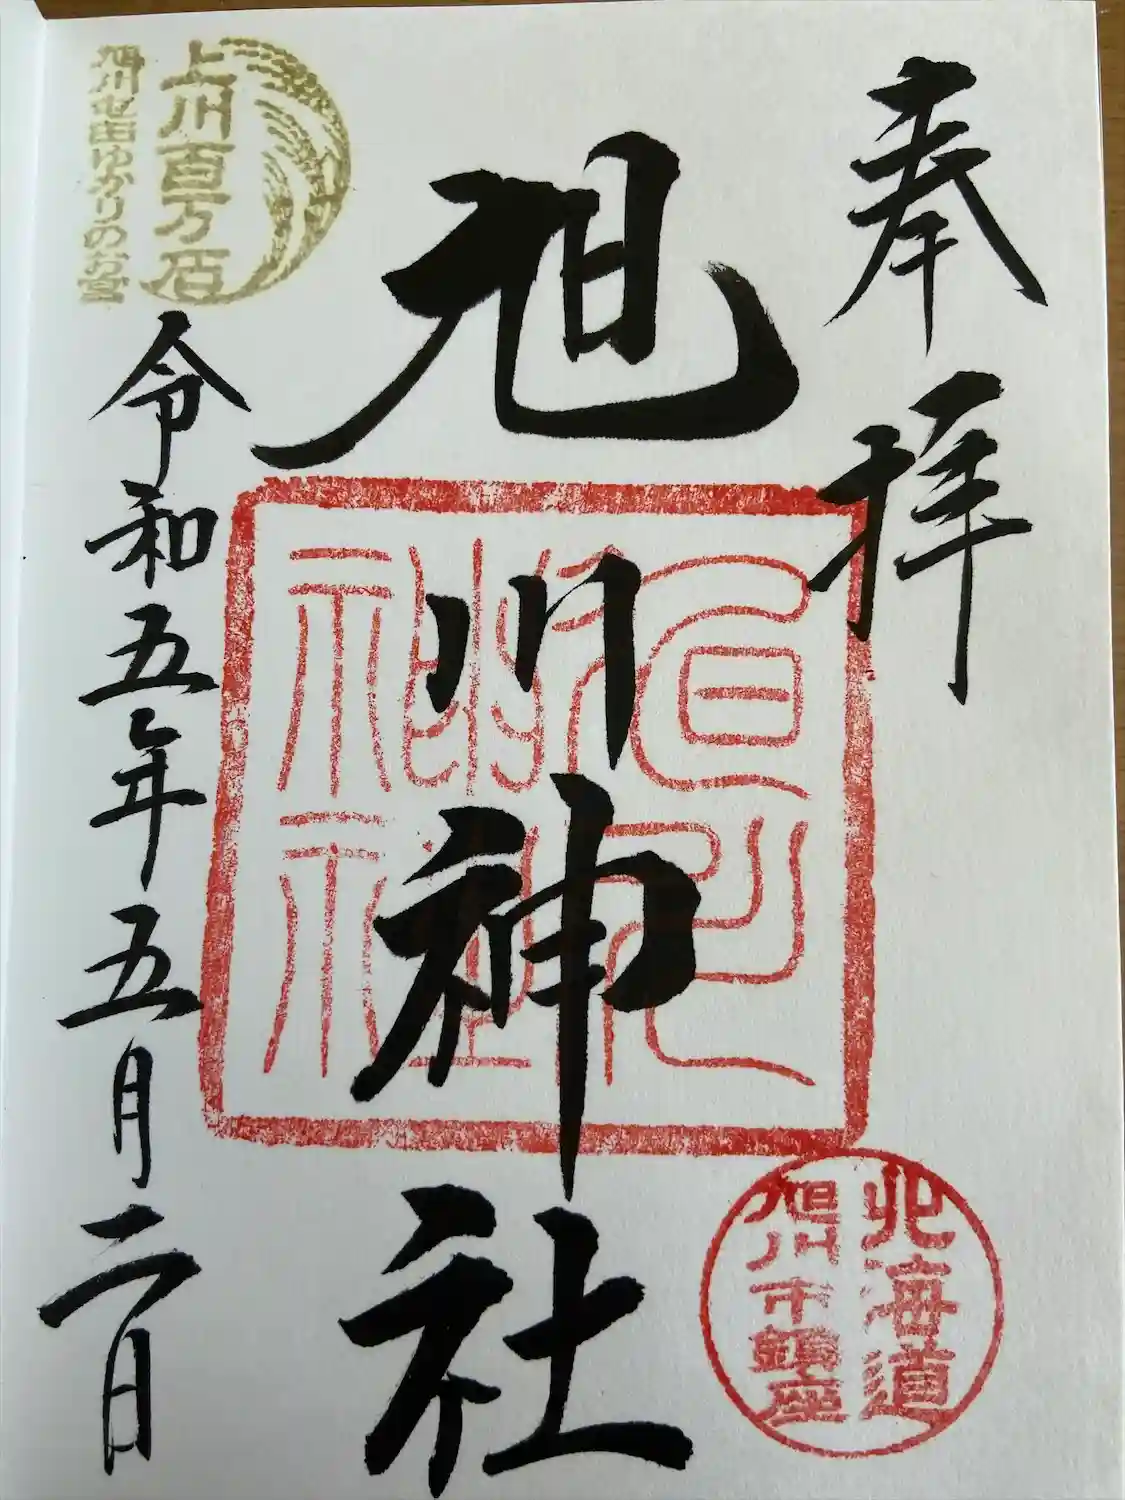 奉拝
旭川神社
旭川神社
北海道
旭川市鎮座
上川百万石
旭川屯田ゆかりのお宮
令和五年五月二日